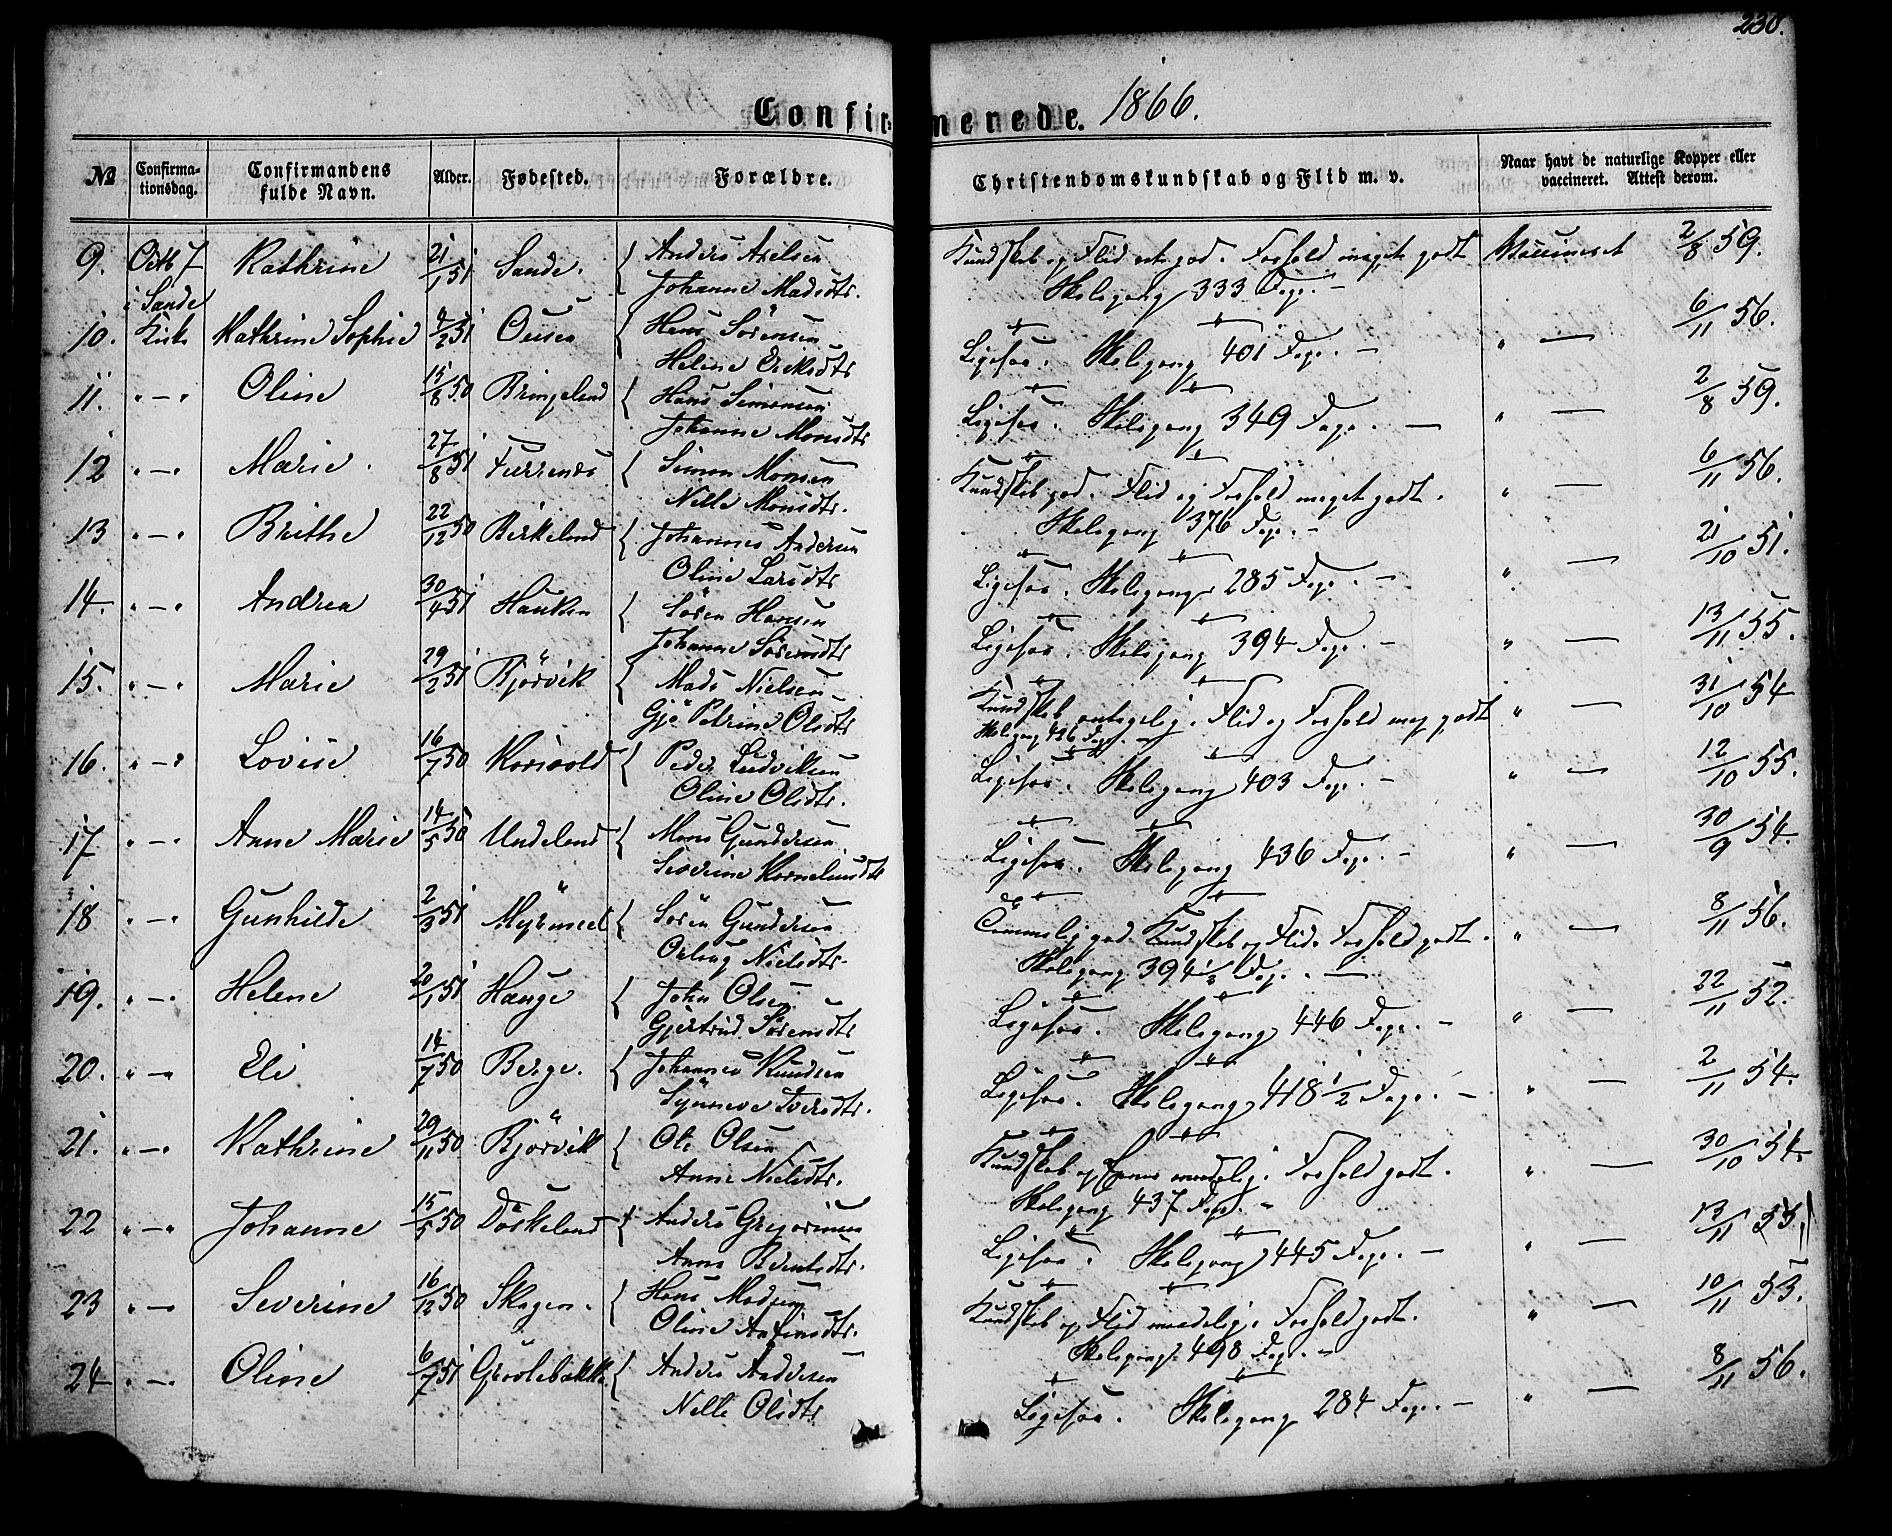 230.
Confirmerede. 1866.
№ Confirmationsdag. Confirmandens fulde Navn. Alder. Fødested. Forældre. Christendomskundskab og Flid m. v. Naar havt de naturlige Kopper eller vaccineret. Attest derom.
9. Octb 7 Kathrine 21/1 51 Sande. { Anders Axelsen Kundskab og Flid god. Forhold meget godt Vaccineret 2/8 59.
i Sande Johanne Madsdtr. Skolegang 333 Dage. -
10. Kirke Kathrine Sophie 51 Ousen { Hans Sørensen " — 6/11 56.
Helene Eriksdtr Ligesaa. Skolegang 401 Dage. -
11. " - " Oline 15/8 50 Bringeland { Hans Simonsen " — 2/8 59.
Johanne Monsdtr Ligesaa. Skolegang 349 Dage. —
12 " - " Marie. 27/8 51 { Simon Monsen Kundskab god. Flid og Forhold meget godt. " — 6/11 56.
Nille Monsdtr. Skolegang 376 Dage. -
13 " - " Brithe 22/12 50 Birkeland { Johannes Andersen " — 21/10 51.
Oline Larsdtr Ligesaa. Skolegang 285 Dage. -
14. " - " Andrea 30/4 51 Hauken { Søren Hansen " — 13/11 55.
Johanne Sørensdtr Ligesaa. Skolegang 394 Dage. -
15. " - " Marie 51 Bjørvik { Mads Nielsen Kundskab antagelig. Flid og Forhold meg. godt " — 31/10 54
Petrine Olsdtr Skolegang 426 Dage.
16. " - " Lovise 16/7 50 Korsvold { Peder Ludviksen " — 12/10 55.
Oline Olsdtr. Ligesaa. Skolegang 403 Dage. -
17 " - " Anne Marie 14/5 50 Undeland { Mons Gundersen " — 30/9 54.
Severine Kornelius dtr Ligesaa. Skolegang 436 Dage. -
18 " - " Gunhilde 2/3 51 { Søren Gundersen god Kundskab og Flid. Forhold godt. " — 8/11 56.
Nielsdtr. Skolegang 394 1/2 Dage. —
19. " - " Helene 20/1 51 Hauge { John Olsen " — 22/11 52.
Gjertrud Sørensdtr Ligesaa. Skolegang 446 Dage. -
20. " - " Eli 14/7 50 Berge. { Johannes Knudsen " — 2/11 54.
Synneve Iversdtr. Ligesaa. Skolegang 418 1/2 Dage. -
21. " - " Kathrine 29/11 50 Bjørvik { Ole Olsen Kundskab og Evner maadelig. Forhold godt. " — 30/10 54.
Anne Nielsdtr. Skolegang 437 Dage. -
22 " - " Johanne 15/5 50 Døskeland { Anders Gregoriusen " — 13/11 53.
Anne Bentsdtr. Ligesaa. Skolegang 445 Dage. -
23 " - " Severine 16/12 50 Skogen. { Hans Madsen Kundskab og Flid maadelig. Forhold godt. " — 10/11 53.
Oline Anfinsdtr. Skolegang 498 Dage. -
24 " - " Oline 6/7 51 { Anders Andersen " — 8/11 56.
Nille Olsdtr Ligesaa. Skolegang 284 Dage. -